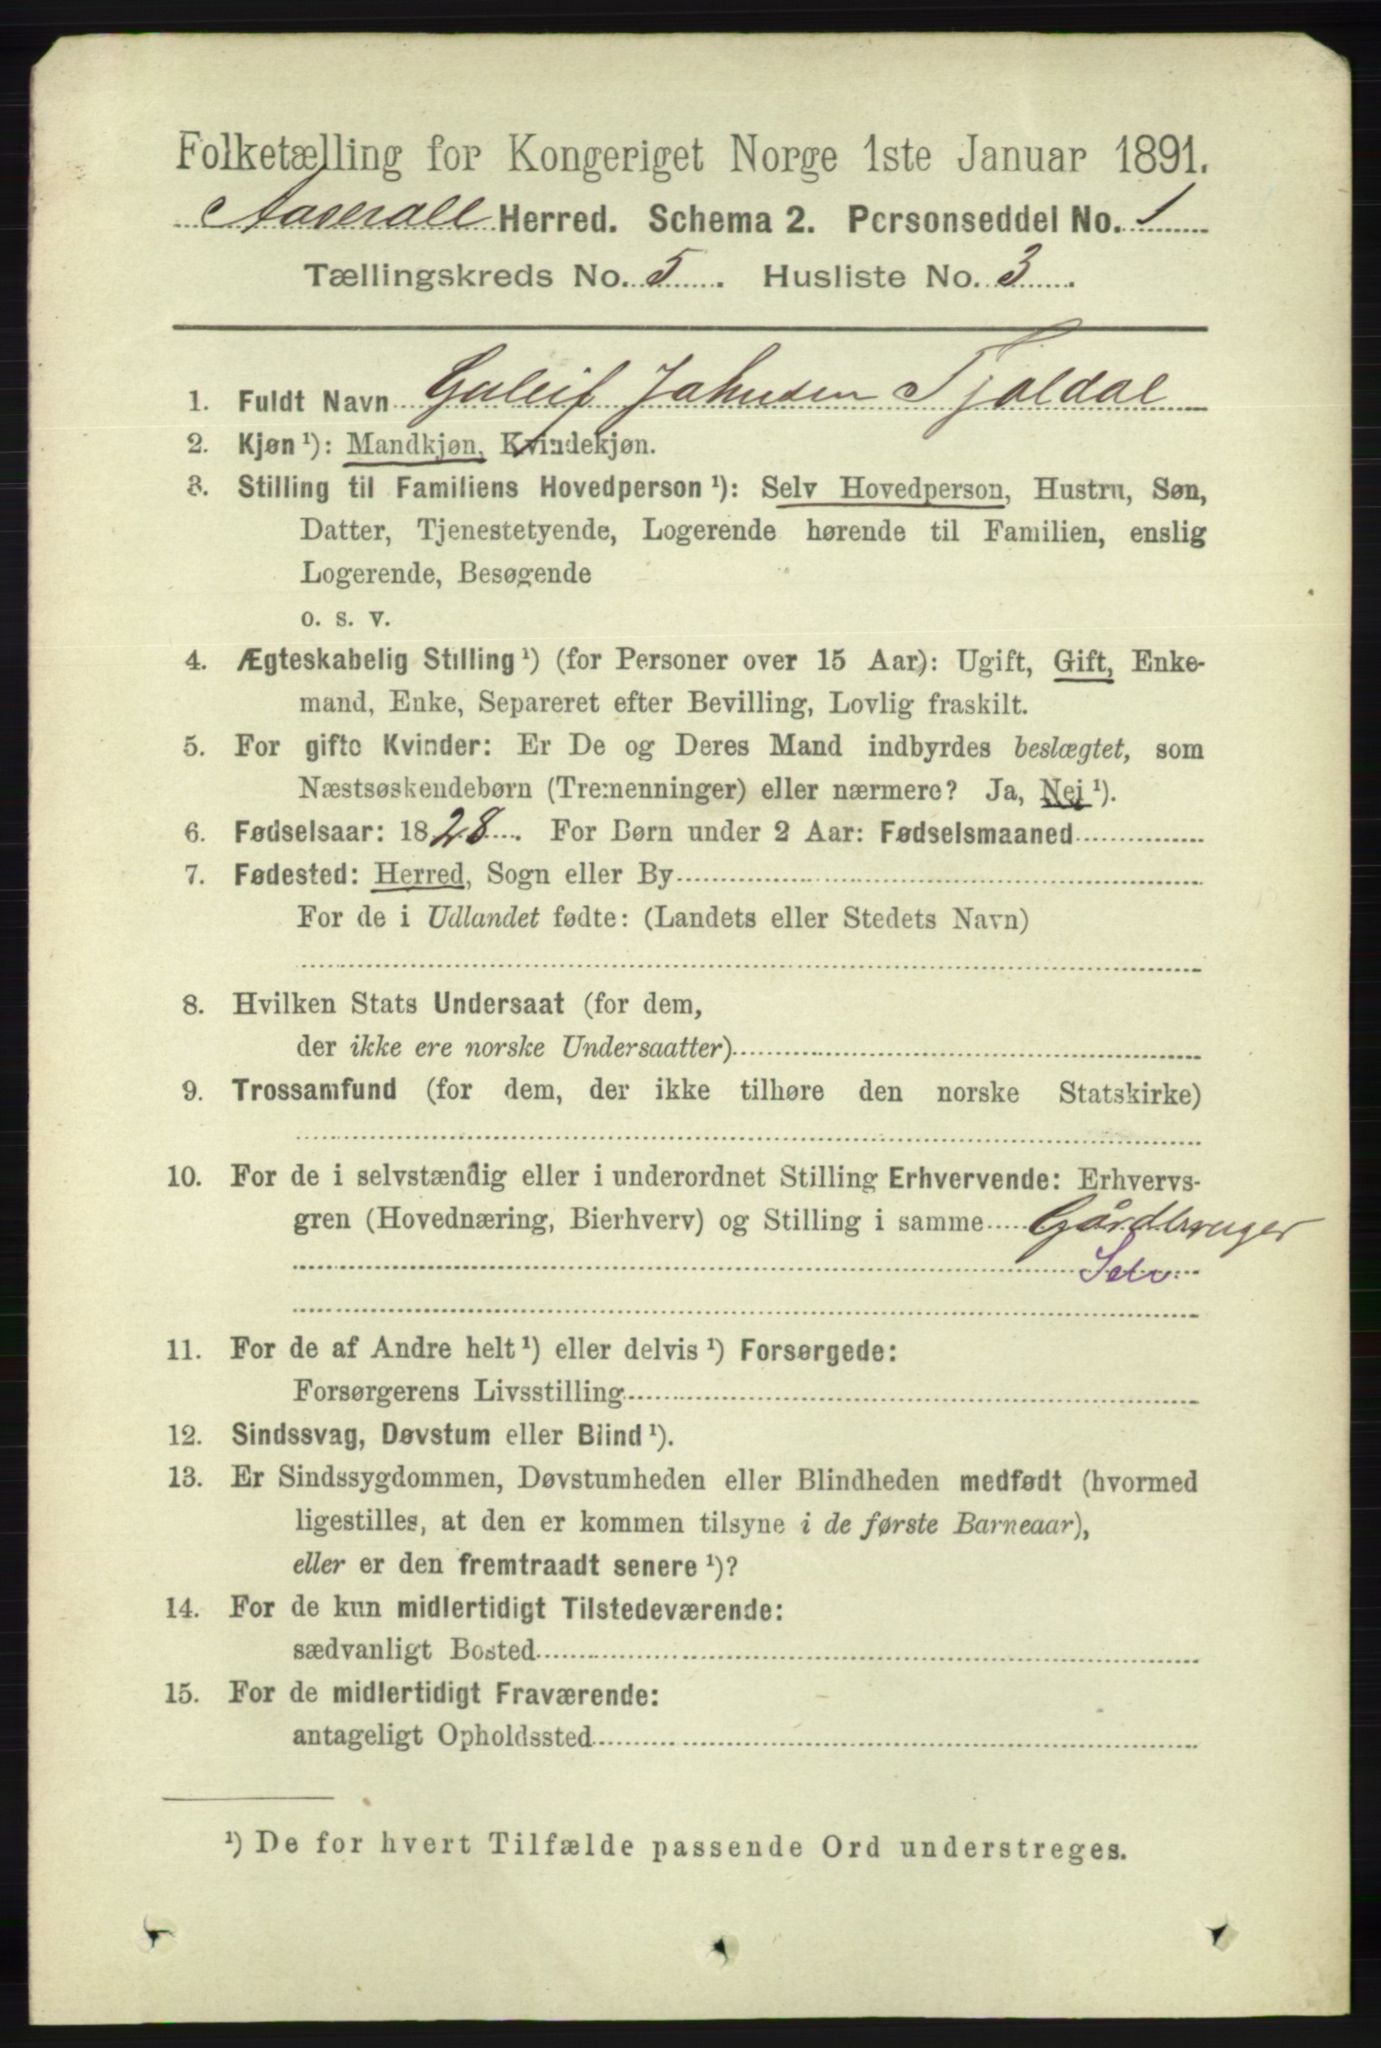 Folketælling for Kongeriget Norge 1ste Januar 1891.
Aaserall Herred. Schema 2. Personseddel No. 1
Tællingskreds No. 5. Husliste No. 3.
1. Fuldt Navn Guleif Johnsen Tjaldal
2. Kjøn¹): Mandkjøn, Kvindekjøn.
3. Stilling til Familiens Hovedperson¹): Selv Hovedperson, Hustru, Søn,
Datter, Tjenestetyende, Logerende hørende til Familien, enslig
Logerende, Besøgende
o. s. v.
4. Ægteskabelig Stilling¹) (for Personer over 15 Aar): Ugift, Gift, Enke-
mand, Enke, Separeret efter Bevilling, Lovlig fraskilt.
5. For gifte Kvinder: Er De og Deres Mand indbyrdes beslægtet, som
Næstsøskendebørn (Tremenninger) eller nærmere? Ja, Nej¹).
6. Fødselsaar: 1828. For Børn under 2 Aar: Fødselsmaaned
7. Fødested: Herred, Sogn eller By
For de i Udlandet fødte: (Landets eller Stedets Navn)
8. Hvilken Stats Undersaat (for dem,
der ikke ere norske Undersaatter)
9. Trossamfund (for dem, der ikke tilhøre den norske Statskirke)
10. For de i selvstændig eller i underordnet Stilling Erhvervende: Erhvervs-
gren (Hovednæring, Bierhverv) og Stilling i samme Gårdbruger
Selv
11. For de af Andre helt¹) eller delvis¹) Forsørgede:
Forsørgerens Livsstilling
12. Sindssvag, Døvstum eller Blind¹).
13. Er Sindssygdommen, Døvstumheden eller Blindheden medfødt (hvormed
ligestilles, at den er kommen tilsyne i de første Barneaar),
eller er den fremtraadt senere¹)?
14. For de kun midlertidigt Tilstedeværende:
sædvanligt Bosted
15. For de midlertidigt Fraværende:
antageligt Opholdssted
¹) De for hvert Tilfælde passende Ord understreges.